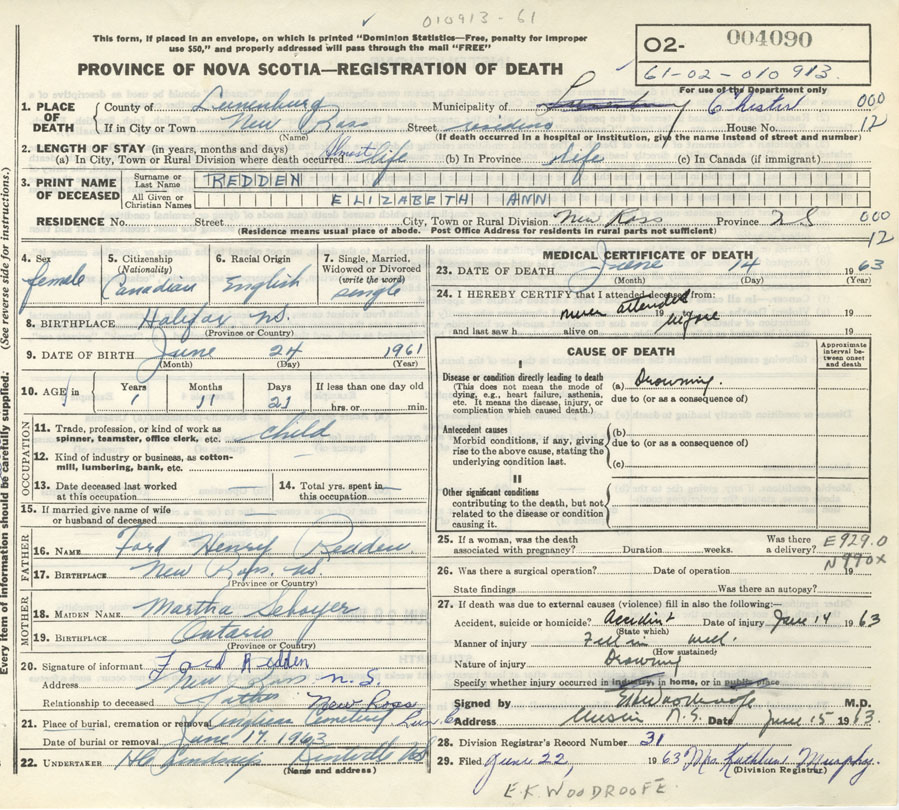 010913-61
This form, if placed in an envelope, on which is printed "Dominion Statistics—Free, penalty for improper
use $50," and properly addressed will pass through the mail "FREE"
PROVINCE OF NOVA SCOTIA—REGISTRATION OF DEATH
O2- 004090
61-02-010 913.
For use of the Department only
1. PLACE OF DEATH { County of Lunenburg Municipality of Chester 000
If in City or Town New Ross Street residence House No. 12
(Name) (If death occurred in a hospital or institution, give the name instead of street and number)
2. LENGTH OF STAY (in years, months and days)
(a) In City, Town or Rural Division where death occurred Almost life (b) In Province Life (c) In Canada (if immigrant)
3. PRINT NAME OF DECEASED { Surname or Last Name REDDEN
All Given or Christian Names ELIZABETH ANN
RESIDENCE No. Street City, Town or Rural Division New Ross Province NS 000
(Residence means usual place of abode. Post Office Address for residents in rural parts not sufficient) 12
4. Sex female
5. Citizenship (Nationality) Canadian
6. Racial Origin English
7. Single, Married, Widowed or Divorced (write the word) single
8. BIRTHPLACE Halifax NS.
(Province or Country)
9. DATE OF BIRTH June 24 1961
(Month) (Day) (Year)
10. AGE in Years 1 Months 11 Days 21 If less than one day old
hrs. or min.
OCCUPATION
11. Trade, profession, or kind of work as
spinner, teamster, office clerk, etc. child
12. Kind of industry or business, as cotton-
mill, lumbering, bank, etc. —
13. Date deceased last worked
at this occupation —
14. Total yrs. spent in
this occupation —
15. If married give name of wife
or husband of deceased —
FATHER
16. NAME Ford Henry Redden
17. BIRTHPLACE New Ross. NS.
(Province or Country)
MOTHER
18. MAIDEN NAME Martha
19. BIRTHPLACE Ontario
(Province or Country)
20. Signature of informant Ford Redden
Address New Ross N.S.
Relationship to deceased Father
21. Place of burial, cremation or removal Anglican Cemetery New Ross Lun. C
Date of burial or removal June 17, 1963
22. UNDERTAKER Kentville NS
(Name and address)
MEDICAL CERTIFICATE OF DEATH
23. DATE OF DEATH June 14 1963
(Month) (Day) (Year)
24. I HEREBY CERTIFY that I attended deceased from:
never attended 19 before
and last saw h alive on 19
CAUSE OF DEATH
Approximate interval between onset and death
I
Disease or condition directly leading to death
(This does not mean the mode of
dying, e.g., heart failure, asthenia,
etc. It means the disease, injury, or
complication which caused death.)
(a) Drowning.
due to (or as a consequence of)
Antecedent causes
Morbid conditions, if any, giving
rise to the above cause, stating the
underlying condition last.
(b)
due to (or as a consequence of)
(c)
II
Other significant conditions
contributing to the death, but not
related to the disease or condition
causing it.
25. If a woman, was the death
associated with pregnancy? Duration weeks. Was there
a delivery? E929.0
N990X
26. Was there a surgical operation? Date of operation 19
State findings Was there an autopsy?
27. If death was due to external causes (violence) fill in also the following:—
Accident, suicide or homicide? Accident Date of injury June 14 1963
(State which)
Manner of injury Fell in well.
(How sustained)
Nature of injury Drowning
Specify whether injury occurred in industry, in home, or in public place
Signed by EKWoodroofe M.D.
Address N.S. Date June 15 1963.
28. Division Registrar's Record Number 31
29. Filed June 22, 1963 Mrs. Kathleen Murphy.
(Division Registrar)
E.K. WOODROOFE.
(See reverse side for instructions.)
Every item of information should be carefully supplied.